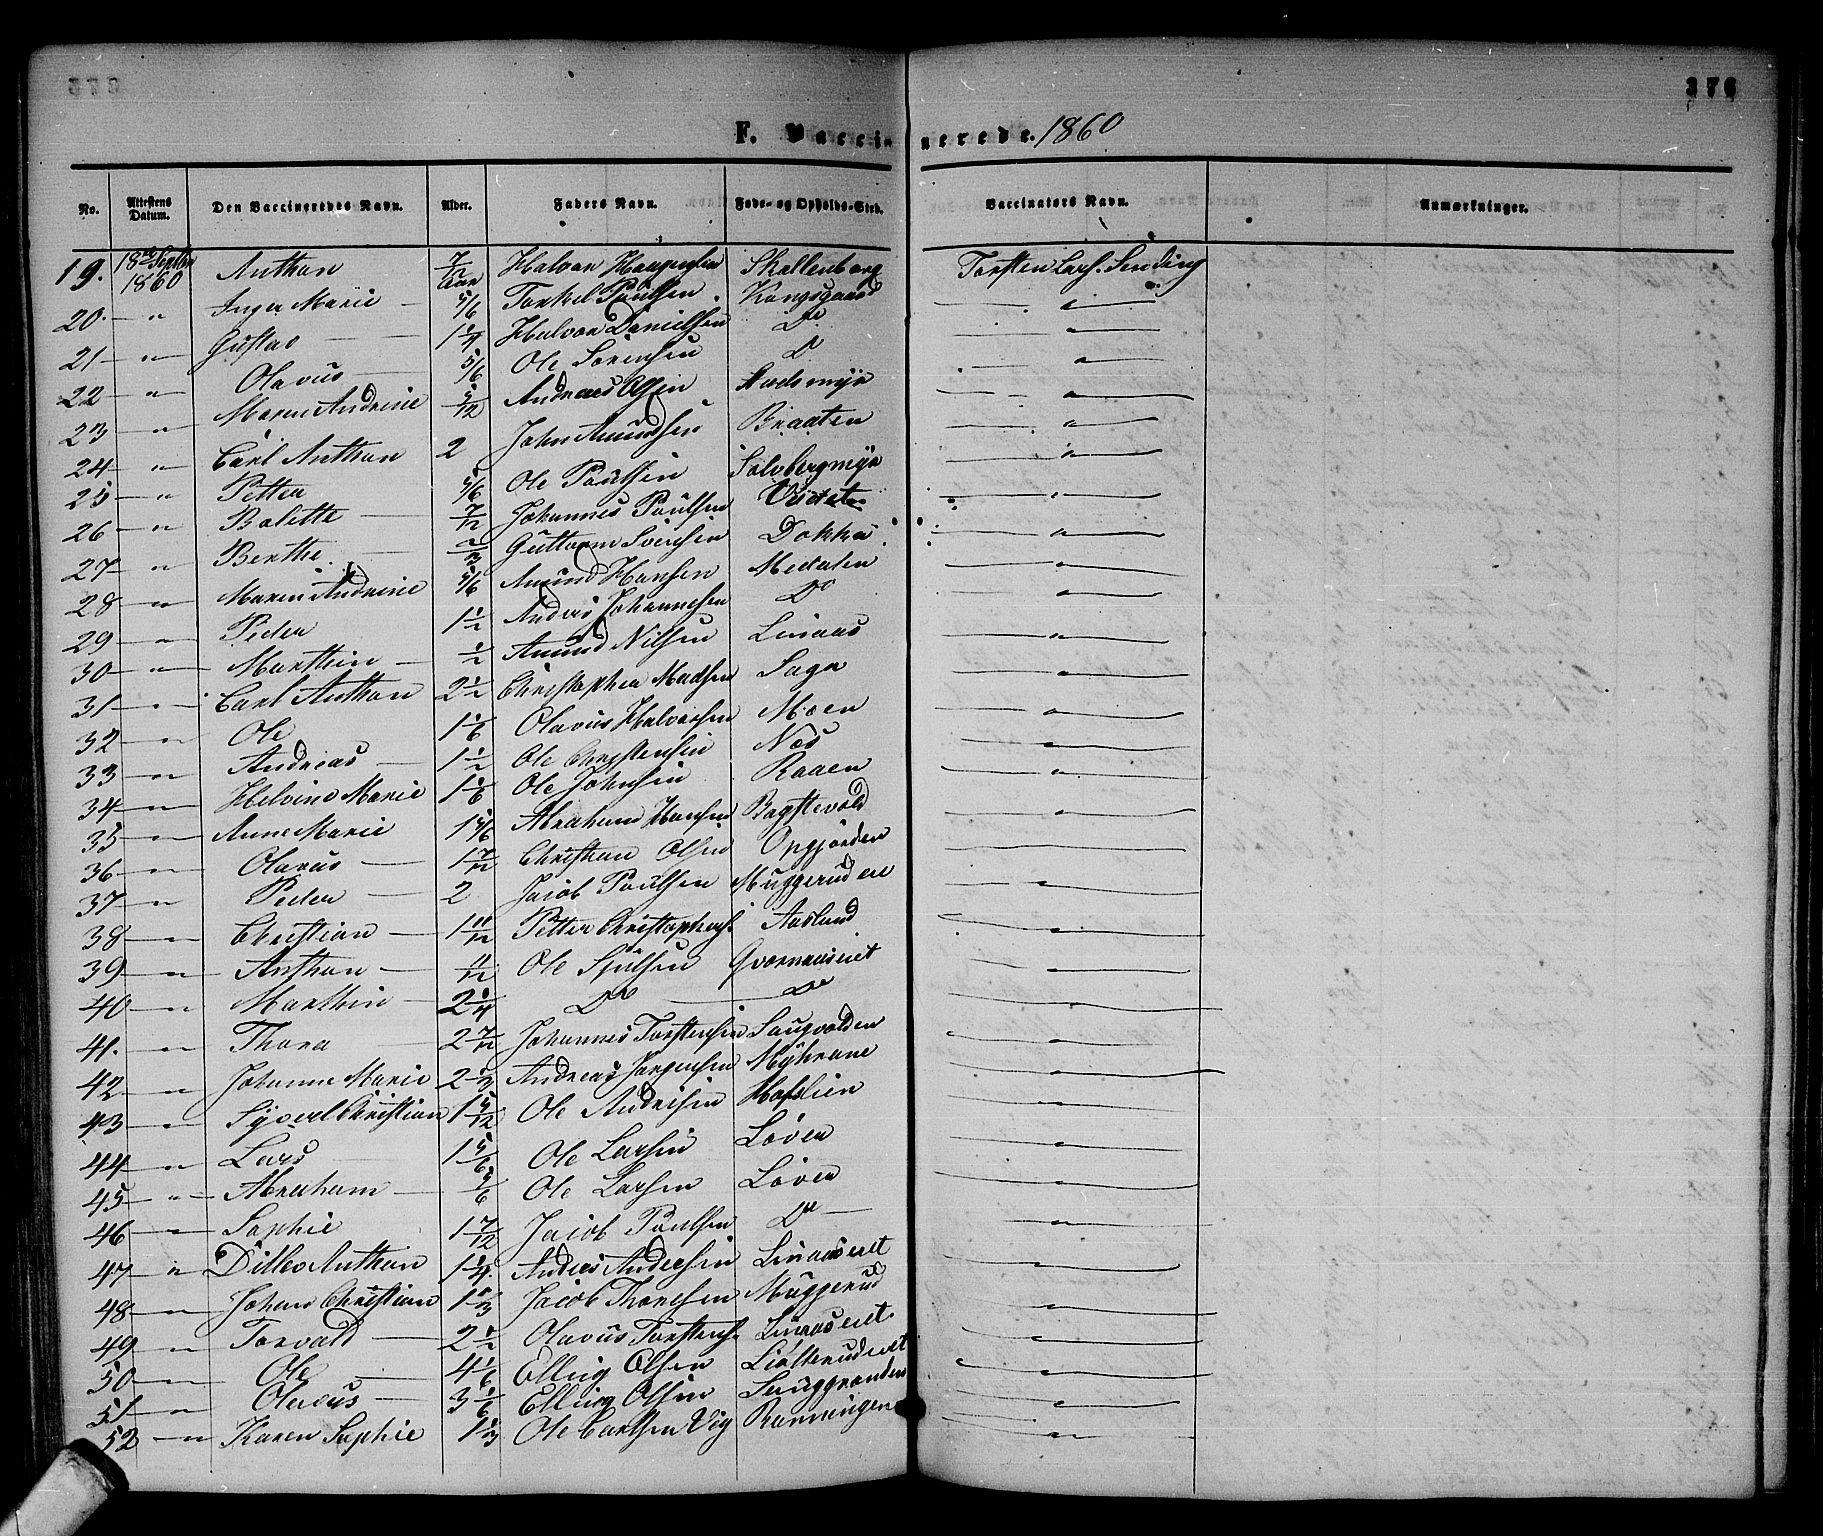 376
F. Vaccinerede. 1860
No. Attestens Datum. Den Vaccineredes Navn. Alder. Faders Navn. Føde- og Opholds-Sted. Vaccinators Navn. Anmærkninger.
19. 18de Septbr 1860 Anthon 7/12 Aar Halvor Skallenborg Torsten Lars. Sending
20. — " Inger Marie — 5/6 Torkel Poulsen. Kongsgaard — " —
21 — " — Gustav — 1 1/4 Halvor Danielsen Do — " —
22 — " — Olavus — 5/6 Ole Sørensen Do "
23 — " Maren Andrine 5/12 Andreas Olsen — " —
24 — " — Carl Anthon 2 John Amundsen Braaten — " —
25 — " Petter 5/6 Ole Poulsen Solbergmyr — " —
26 — " Bolette — 7/12 Johannes Poulsen — " —
27 — " Berthe — 2/3 Guttorm Svensen Dokka — " —
28 — " — Maren Andrine 5/6 Amund Hansen Medalen — " —
29 — " Peder 1 1/2 Anders Johannesen Do — " —
30 — " — Marthin — 1/2 Amund Nilsen Linaas — " —
31 — " — Carl Anthon 2 1/2 Christopher Madsen Saga — " —
32 — " — Ole 1 1/6 Olavus Halvorsen Moen — " —
33 — " — Andreas — 1 1/2 Ole Christensen Næs — " —
34 — " — Helvine Marie 1 1/6 Ole Johnsen Raaen — " —
35 — " — Anne Marie 1 5/6 Abraham Hansen Bagstevold — " —
36 — " — Olavus — 1 7/12 Christian Olsen Opgjørden — " —
37 — " — Peder — 2 Jacob Poulsen Muggerudere — " —
38 — " — Christian — 1 11/12 Petter Christophers Aaslund — " —
39 — " Anthon — 11/12 Ole Sjulsen Qværnaaseiet — " —
40 — " — Marthin — 2 1/4 Do — Do — " —
41. — " — Thora — 2 7/12 Johannes Torstensen Saugvolden — " —
42 — " Johanne Marie 2 2/3 Andreas Jørgensen Myhrane — " —
43 — " Syverl Christian 1 5/12 Ole Andersen Hofslien — " —
44 — " — Lars — 1 5/6 Ole Larsen Løver — " —
45 — " — Abraham — 5/6 Ole Larsen Løver — " —
46 — " — Sophie 1 7/12 Jacob Poulsen Do — — " —
47 — " Ditlev Anthon 1 1/4 Anders Andersen Linaaseiet — " —
48 — " — Johan Christian 1 1/3 Jacob Thoresen Muggerud — " —
49 — " Torvald — 2 1/2 Olavus Torstens. Linaaseiet — " —
50 — " — Ole — 4 1/6 Elling Olsen — " —
51 — " Olavus — 3 1/6 Elling Olsen — " —
52 — " Karen Sophie 1 1/3 Ole Carlsen Vig Rønningen — " —